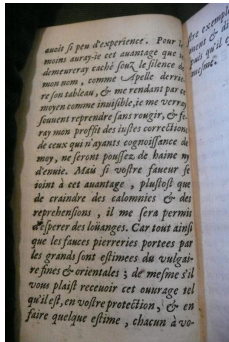 auoit si peu d'experience. Pour le
moins auray-ie cet auantage que ie
demeureray caché souz le silence de
mon nom, comme Apelle derrie-
re son tableau, & me rendant par ce
moyen comme inuisible, ie me verray
souuent reprendre sans rougir, & fe-
ray mon proffit des iustes corrections
de ceux qui n'ayants cognoissance de
moy, ne seront poussez de haine ny
d'enuie. Mais si vostre faueur se
ioint à cet auantage, plustost que
de craindre des calomnies & des
reprehensions, il me sera permis
d'esperer des loüanges. Car tout ainsi
que les fauces pierreries portees par
les grands sont estimees du vulgai-
re fines & orientales; de mesme s'il
vous plaist receuoir cet ouurage tel
qu'il est, en vostre protection, & en
faire quelque estime, chacun à vo-
stre exempl
& di
qu'il e
mesme.